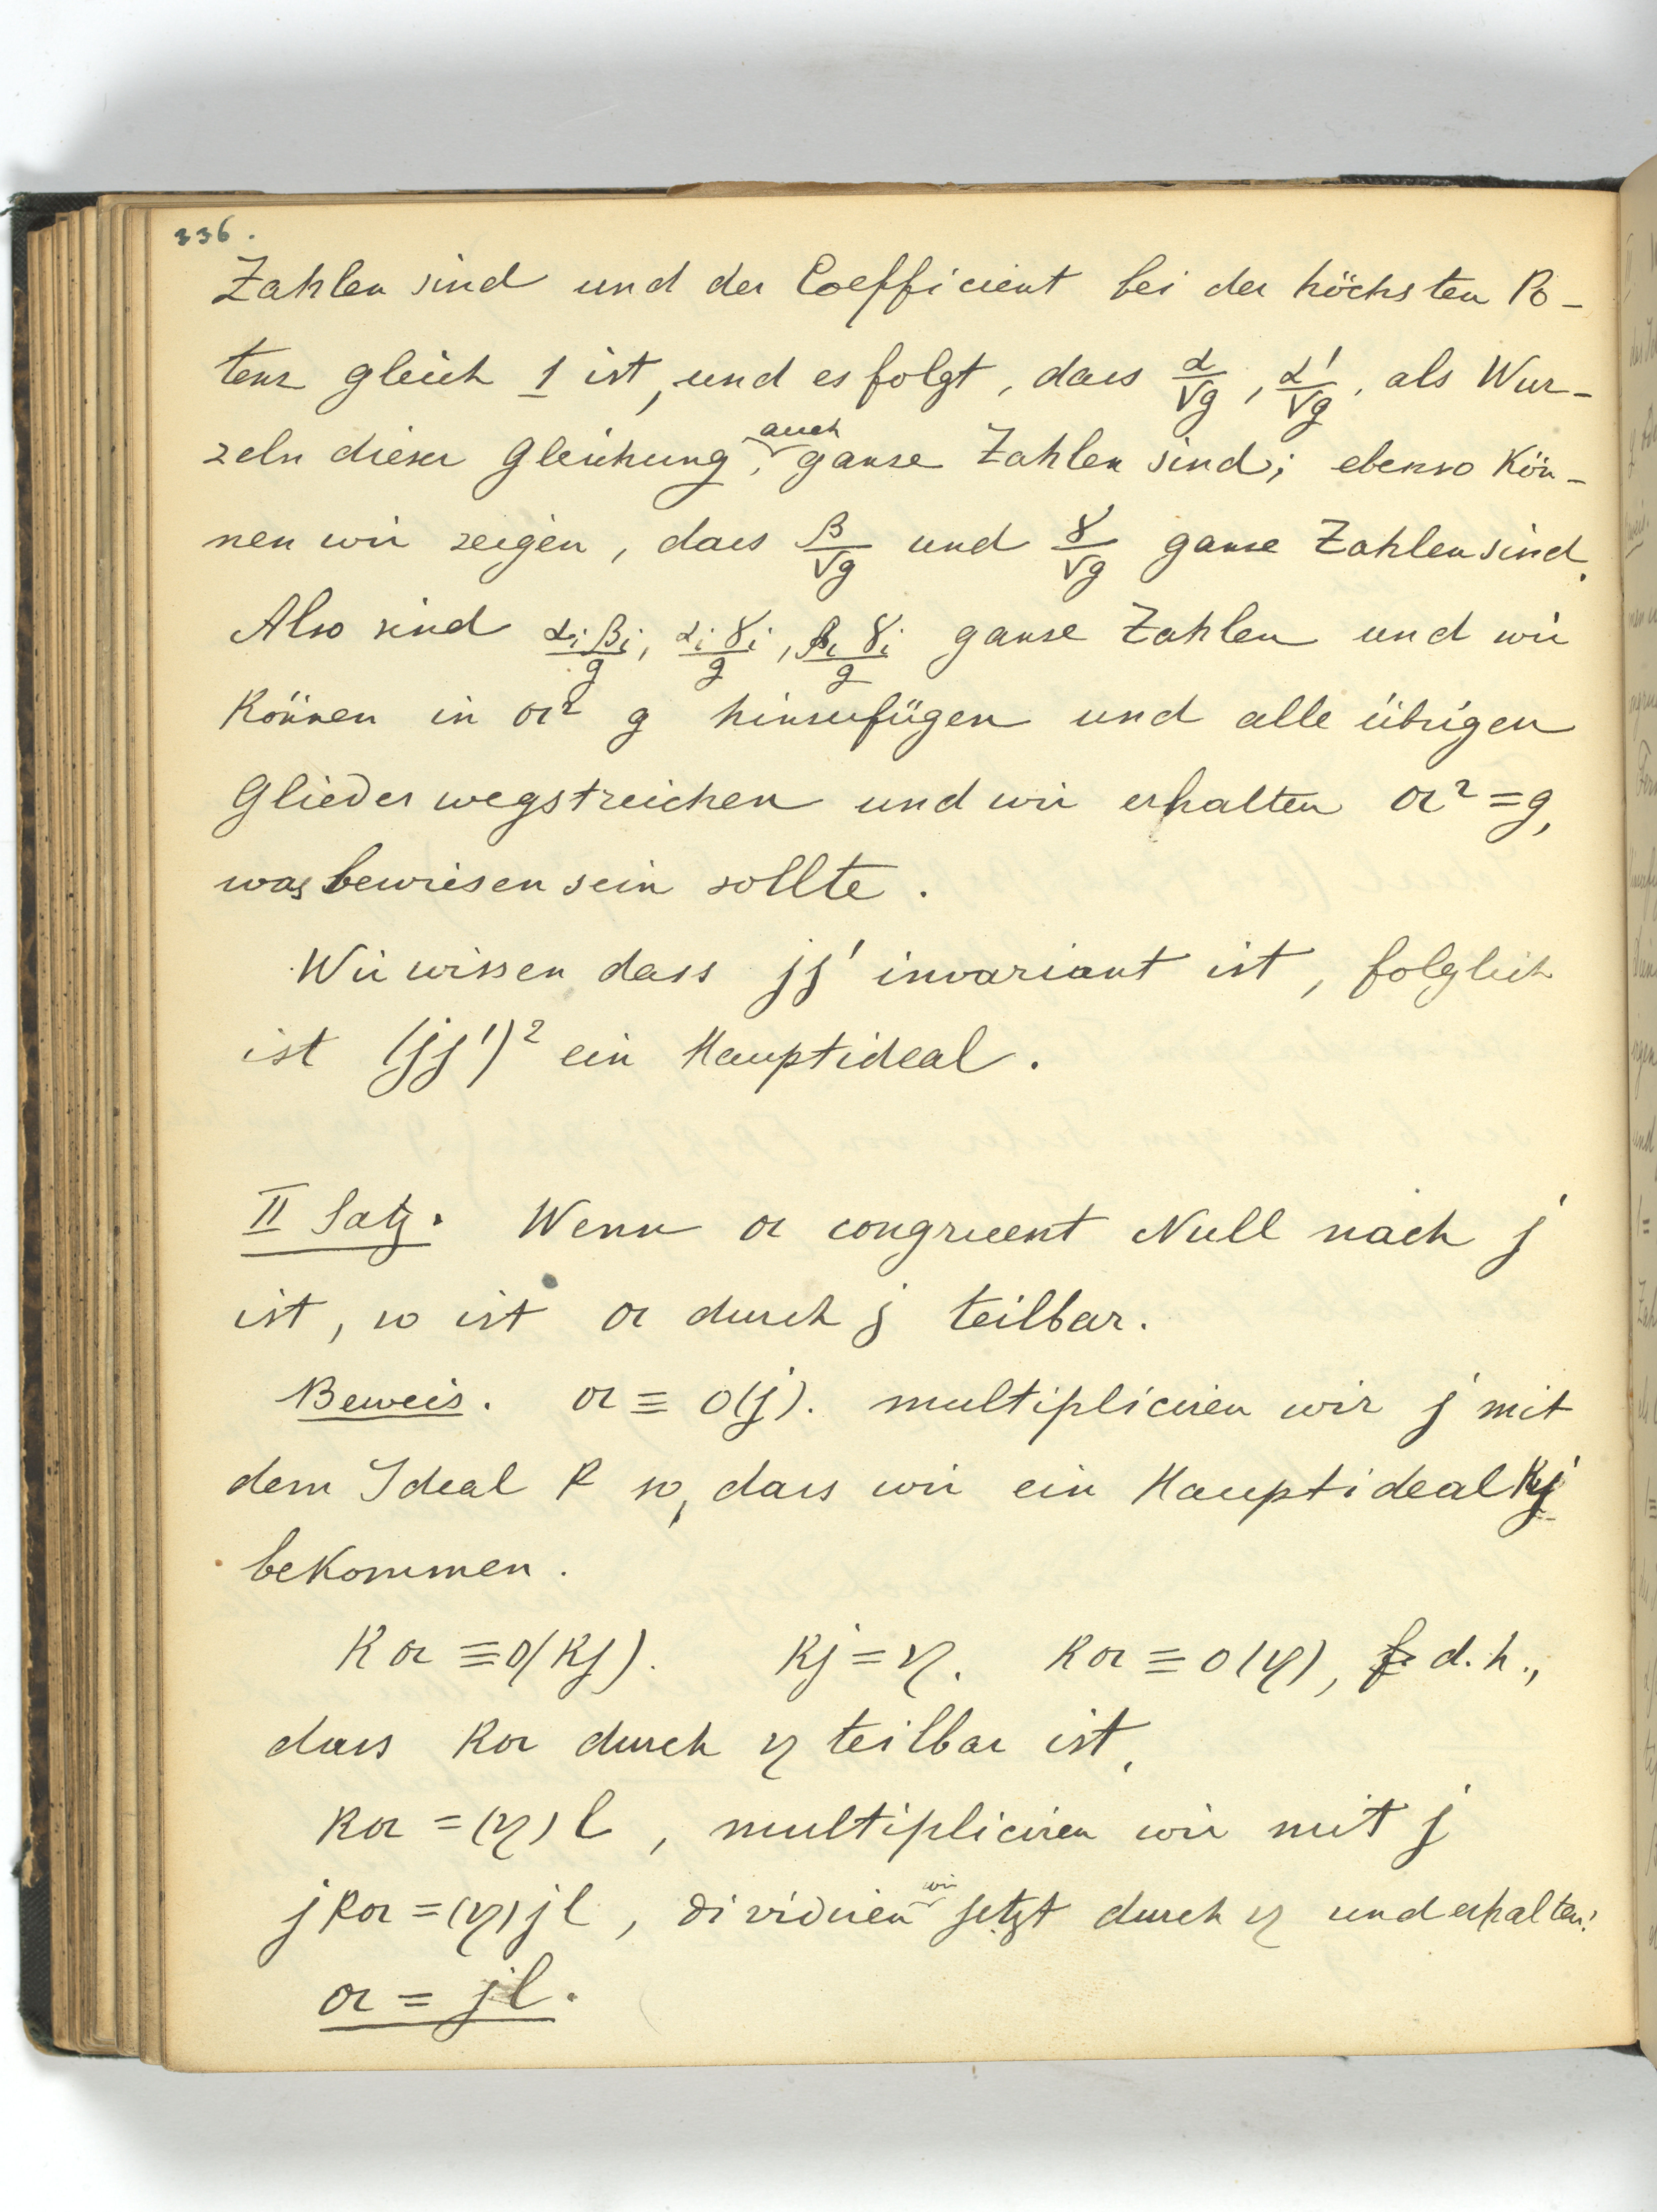 336.
Zahlen sind und der Coefficient bei der höchsten Po-
tenz gleich 1 ist, und es folgt, dass α/√g, α'/√g, als Wur-
zeln dieser Gleichung, auch ganze Zahlen sind; ebenso kön-
nen wir zeigen, dass β/√g und γ/√g ganze Zahlen sind.
Also sind αᵢβᵢ/g, αᵢγᵢ/g, βᵢγᵢ/g ganze Zahlen und wir
können in α² g hinzufügen und alle übrigen
Glieder wegstreichen und wir erhalten α² = g,
was bewiesen sein sollte.
Wir wissen dass jj' invariant ist, folglich
ist (jj')² ein Hauptideal.
II Satz. Wenn α congruent Null nach j
ist, so ist α durch j teilbar.
Beweis. α ≡ 0(j). multipliciren wir j mit
dem Ideal k so, dass wir ein Hauptideal kj
bekommen.
kα ≡ 0(kj). kj = η. kα ≡ 0(η), d.h.,
dass kα durch η teilbar ist.
kα = (η)l, multipliciren wir mit j
jkα = (η)jl, dividiren wir jetzt durch η und erhalten:
α = jl.